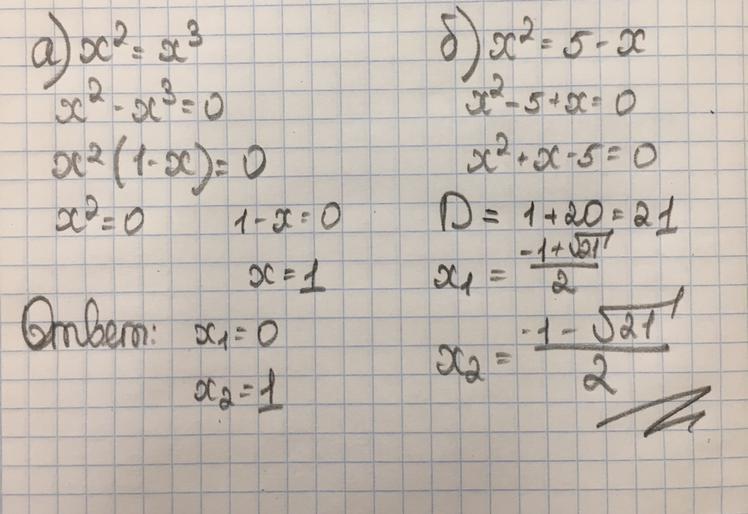 а) x² = x³
x² - x³ = 0
x² (1 - x) = 0
x² = 0 1 - x = 0
x = 1
Ответ: x₁ = 0
x₂ = 1
б) x² = 5 - x
x² - 5 + x = 0
x² + x - 5 = 0
D = 1 + 20 = 21
x₁ = (-1 + √21)/2
x₂ = (-1 - √21)/2